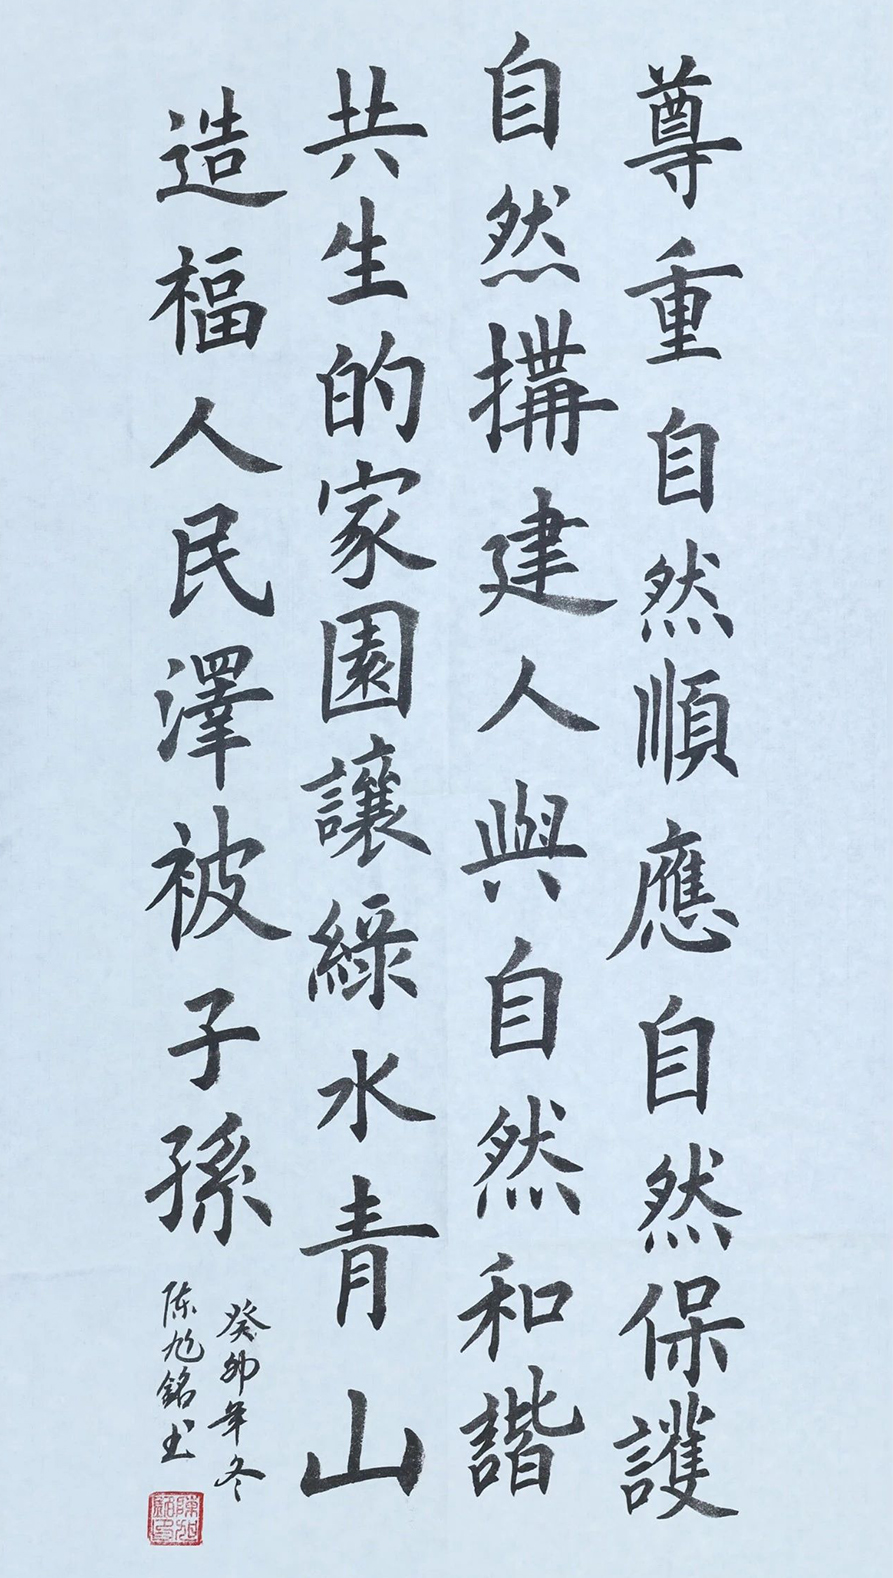 尊重自然順應自然保護
自然搆建人與自然和諧
共生的家園讓綠水青山
造福人民澤被子孫
癸卯年冬
陈旭銘书
陳旭銘印